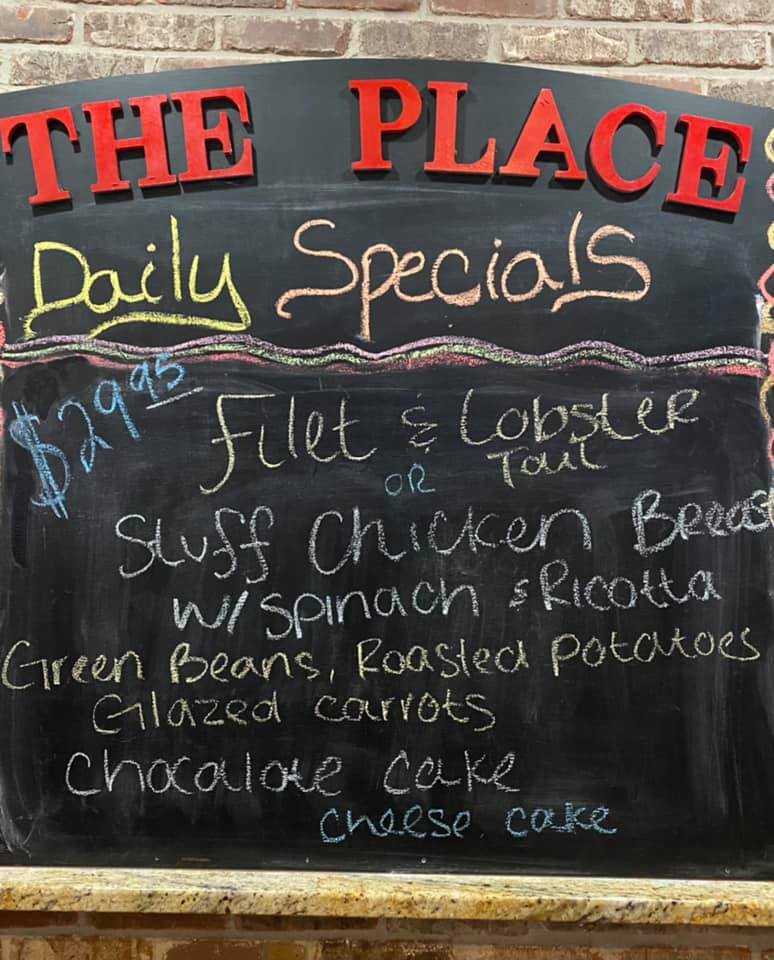 THE PLACE
Daily Specials
$29.95
Filet & Lobster
Tail
OR
Stuff Chicken Breast
W/ Spinach & Ricotta
Green Beans, Roasted Potatoes
Glazed carrots
Chocalate Cake
Cheese cake